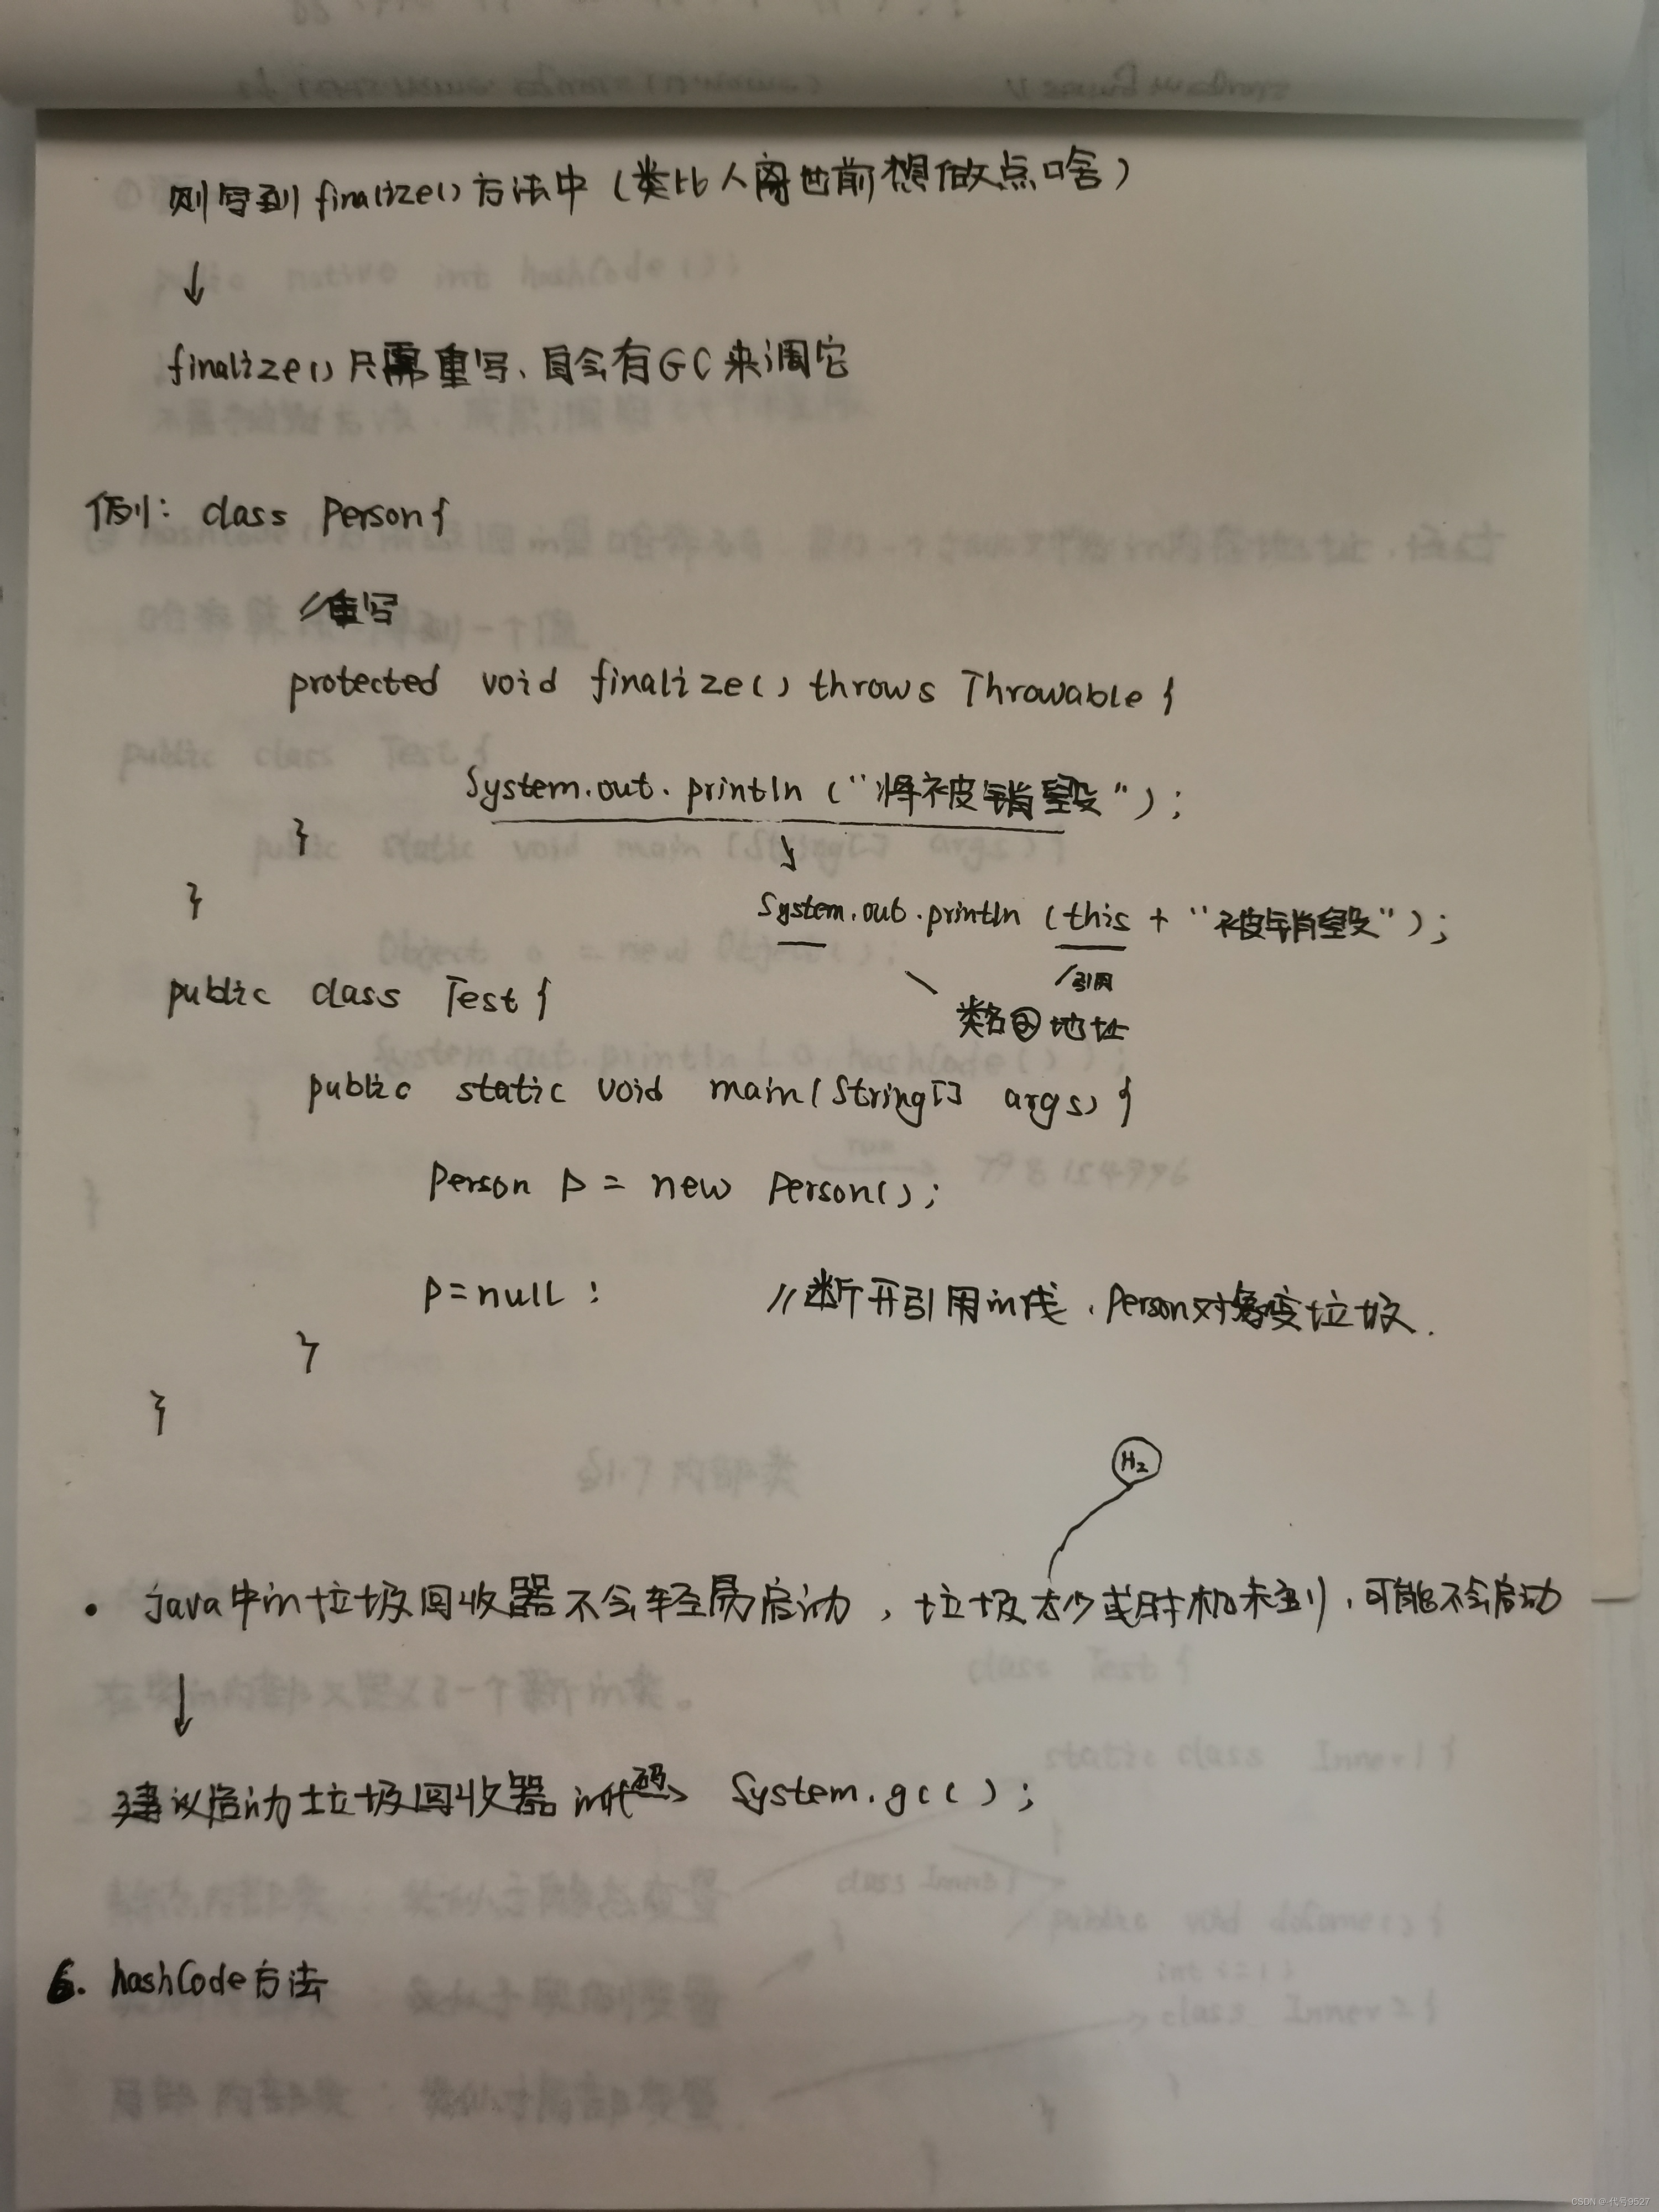 则写到 finalize() 方法中 (类比人离世前想做点啥)
↓
finalize() 只需重写、自会有GC来调它
例: class Person{
//重写
protected void finalize() throws Throwable {
System.out.println ("将被销毁");
}
↓
}
System.out.println (this + "被销毁");
引用
类名@地址
public class Test{
public static void main(String[] args) {
Person p = new Person();
p = null; //断开引用in线, Person对象变垃圾.
}
}
H₂
• java中in垃圾回收器不会轻易启动, 垃圾太少或时机未到, 可能不会启动
↓
建议启动垃圾回收器in代码 System.gc();
6. hashCode方法
CSDN @代号9527